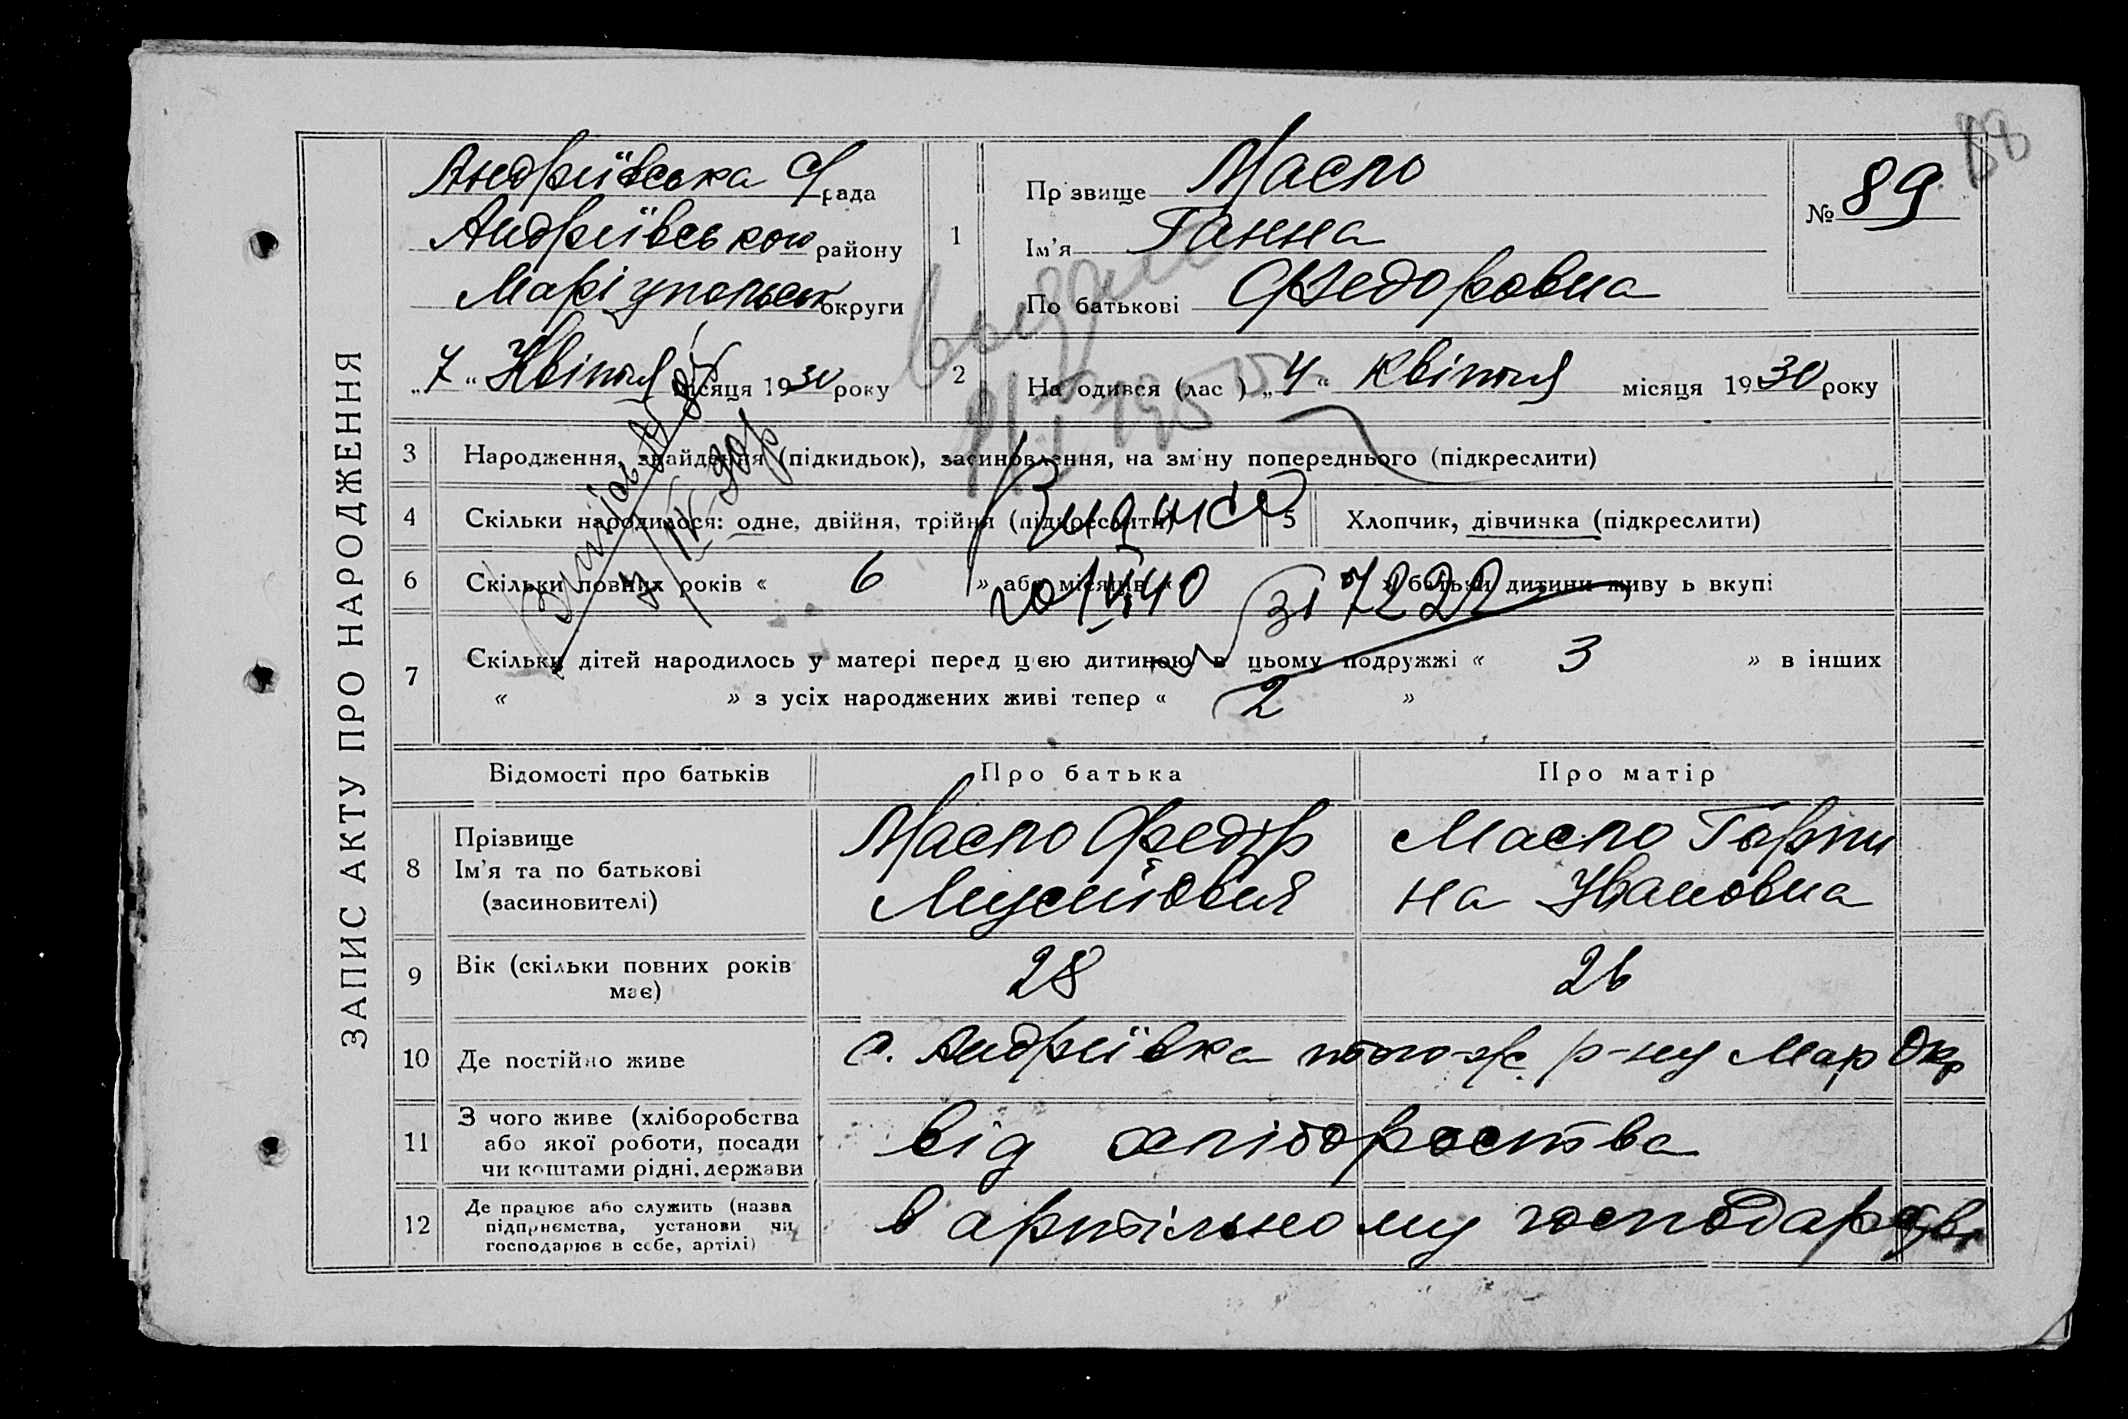 ЗАПИС АКТУ ПРО НАРОДЖЕННЯ
88
Андріївська с/рада
Андріївського району
Маріупольськ округи
„7“ Квітня місяця 1930 року
1
Прізвище Масло
Ім'я Ганна
По батькові Федоровна
№ 89
2
На одився (лас ) „4“ квітня місяця 1930 року
3 Народження, знайдення (підкидьок), засиновлення, на зміну попереднього (підкреслити)
4 Скільки народилося: одне, двійня, трійня (підкреслити)
5 Хлопчик, дівчинка (підкреслити)
6 Скільки повних років « 6 » або місяців « » батьки дитини живу ь вкупі
7 Скільки дітей народилось у матері перед цією дитиною в цьому подружжі « 3 » в інших
« » з усіх народжених живі тепер « 2 »
317222
Відомості про батьків
Про батька
Про матір
8 Прізвище
Ім'я та по батькові
(засиновителі)
Масло Федір
Мусійович
Масло Гарпи
на Ивановна
9 Вік (скільки повних років
має)
28
26
10 Де постійно живе
с. Андріївка того-ж р-ну Мар Окр
11 З чого живе (хліборобства
або якої роботи, посади
чи коштами рідні, держави
від хлібороства
12 Де працює або служить (назва
підприємства, установи чи
господарює в себе, артілі)
в артільному господарстві